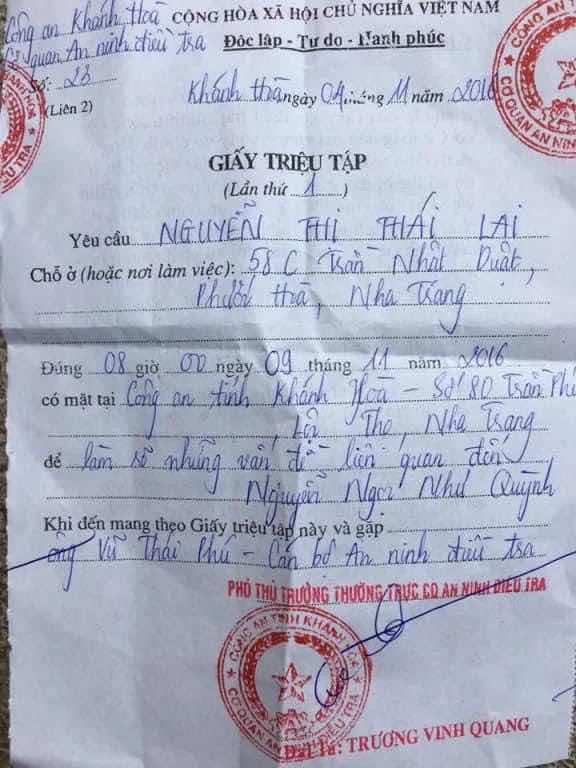 Công an Khánh Hoà
Cơ quan An ninh điều tra
Số: 28
(Liên 2)
CỘNG HÒA XÃ HỘI CHỦ NGHĨA VIỆT NAM
Độc lập - Tự do - Hạnh phúc
Khánh Hoà ngày 04 tháng 11 năm 2016
GIẤY TRIỆU TẬP
(Lần thứ 1)
Yêu cầu NGUYỄN THỊ THÁI LAI
Chỗ ở (hoặc nơi làm việc): 58 C Trần Nhật Duật,
Phước Hoà, Nha Trang
Đúng 08 giờ 00 ngày 09 tháng 11 năm 2016
có mặt tại Công an tỉnh Khánh Hoà - Số 80 Trần Phú
, Lộc Thọ, Nha Trang
để làm rõ những vấn đề liên quan đến
Nguyễn Ngọc Như Quỳnh
Khi đến mang theo Giấy triệu tập này và gặp
ông Vũ Thái Phú - Cán bộ An ninh điều tra
PHÓ THỦ TRƯỞNG THƯỜNG TRỰC CQ AN NINH ĐIỀU TRA
CÔNG AN TỈNH KHÁNH HÒA
CƠ QUAN AN NINH ĐIỀU TRA
Đại Tá: TRƯƠNG VINH QUANG